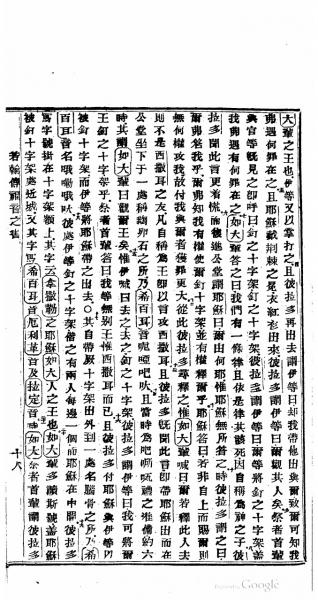 大輩之王也伊等又以掌打之且彼拉多再出去謂伊等曰却我帶他出與爾致可知我
弗遇何罪在之且耶穌戴荊棘之冕衣紅袍出來彼拉多謂伊等曰爾觀其人矣祭者首輩
與官等既見之卽呼曰釘之十字架釘之十字架彼拉多謂伊等曰爾等將釘之十字架蓋
我弗遇有何罪在之如大輩答之曰我們有一條律且依是律其該死因自稱爲神之子彼
拉多聞此言更着慌而復進公堂謂耶穌曰爾由何耶惟耶穌無所答之時彼拉多謂之曰
爾弗答我乎爾弗知我有權使爾釘十字架並有權釋爾乎耶穌答曰若非自上而賜爾則
無何權攻我故付我與爾者獲罪更大從此彼拉多尋釋之惟如大輩喊曰爾若釋此人去
則不是西撒耳之友凡自稱爲王卽以言攻西撒耳也彼拉多既聞此言卽帶耶穌出而在
公堂坐下于一處稱砌卵石之所乃希百耳音且當時爲禮之准備約六
時其謂如大輩曰觀爾王矣惟伊喊曰去之去之釘之十字架彼拉多謂伊等曰我可將爾
王釘之十字架乎祭者首輩答曰我等無別王惟西撒耳而已且彼拉多付耶穌與伊等以
被釘十字架而伊等將耶穌帶之出去○其自帶厥十字架出外到一處名腦骨之所乃希
百耳音名彼處伊等釘之十字架偕之有兩人每邊一個而耶穌在中間彼拉多
寫字號掛在十字架額上其字云拿撒勒之耶穌如大人之王也如大輩多顧斯號蓋耶穌
被釘十字架處近城又其字爲希百耳音厄利革音及拉定音時如大祭者首輩謂彼拉多
若翰傳福音之書
十八
Google